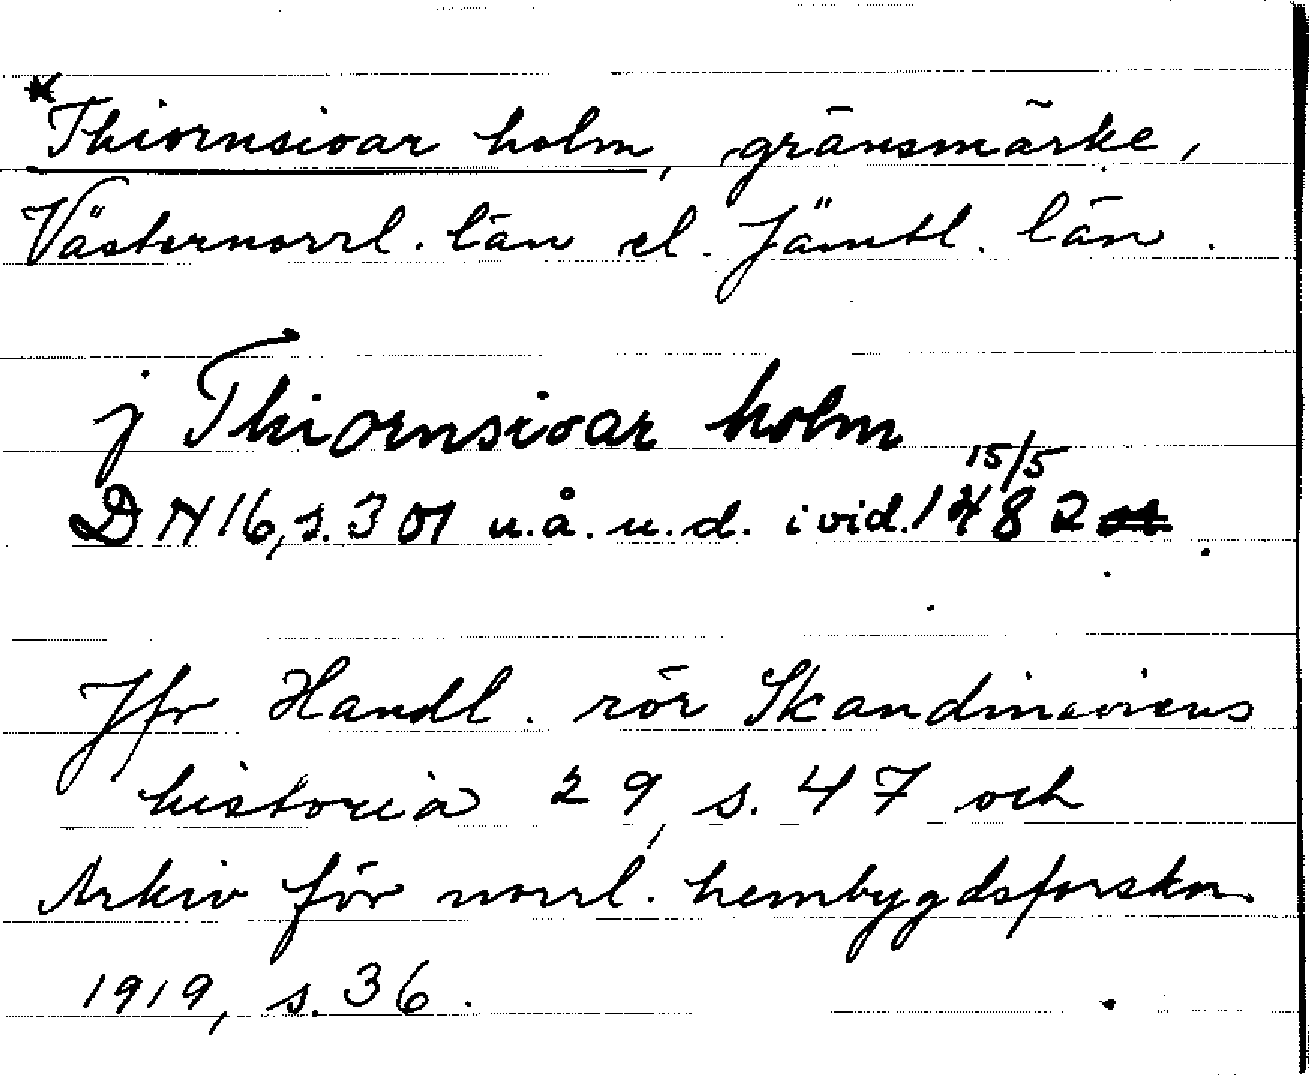 *Thiornsioar holm, gränsmärke,
Västernorrl. län el. Jämtl. län.
j Thiornsioar holm
15/5
DN 16, s. 301 u.å.u.d. i vid. 1482
Jfr Handl. rör Skandinaviens
historia 29, s. 47 och
Arkiv för norrl. hembygdsforskn.
1919, s. 36.